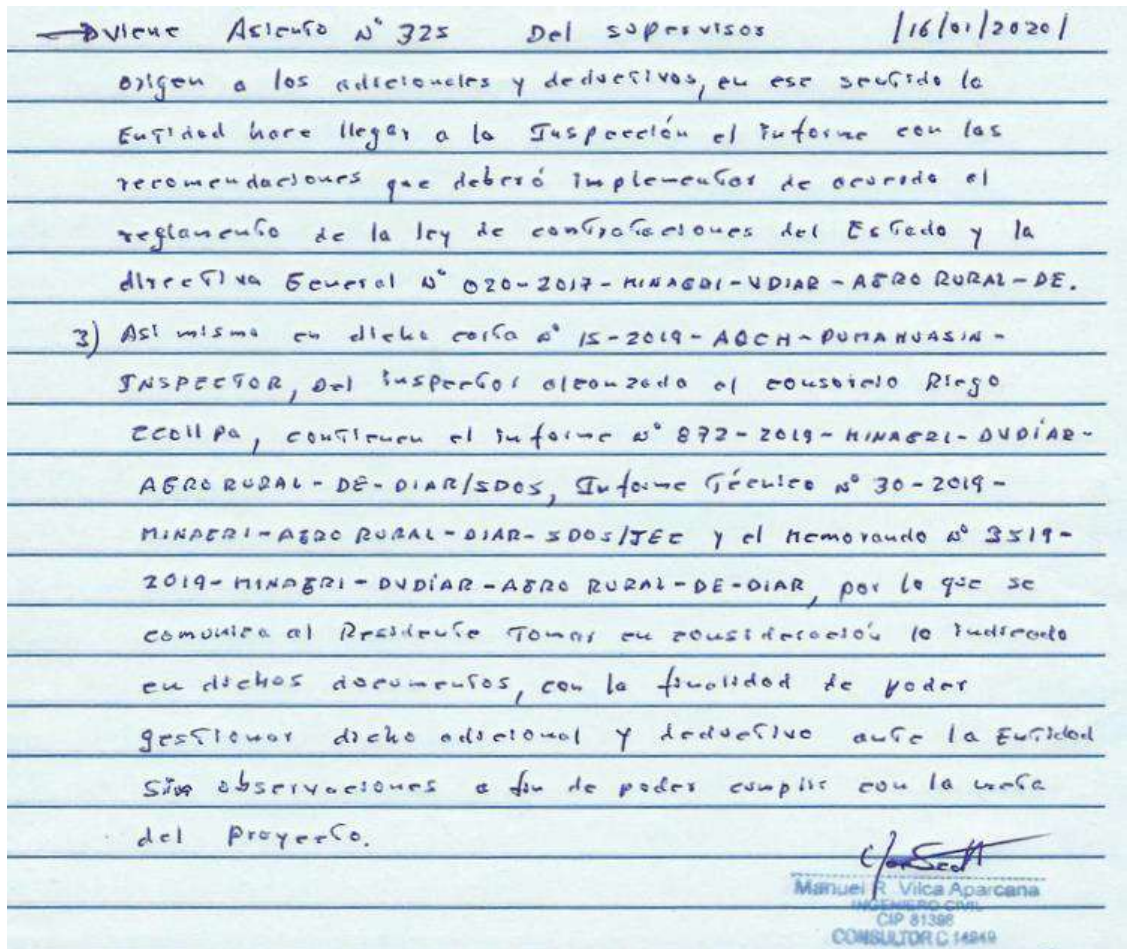 → viene Asiento N° 325 Del supervisor /16/01/2020/
origen a los adicionales y deductivos, en ese sentido la
Entidad hace llegar a la Inspección el informe con las
recomendaciones que deberá implementar de acuerdo al
reglamento de la ley de contrataciones del Estado y la
directiva General N° 020-2017-MINAGRI-VDIAR-AGRO RURAL-DE.
3) Asi mismo en dicha carta N° 15-2019-AQCH-PUMAHUASIN-
INSPECTOR, Del inspector alcanzado al consorcio Riego
CCollpa, contienen el informe N° 872-2019-MINAGRI-DVDIAR-
AGRO RURAL-DE-DIAR/SDOS, Informe Técnico N° 30-2019-
MINAGRI-AGRO RURAL-DIAR-SDOS/JEC y el Memorando N° 3519-
2019-MINAGRI-DVDIAR-AGRO RURAL-DE-DIAR, por lo que se
comunica al Residente Tomar en consideración lo indicado
en dichos documentos, con la finalidad de poder
gestionar dicho adicional y deductivo ante la Entidad
Sin observaciones a fin de poder cumplir con la meta
del proyecto.
Manuel R. Vilca Aparcana
INGENIERO CIVIL
CIP 81398
CONSULTOR C 14949